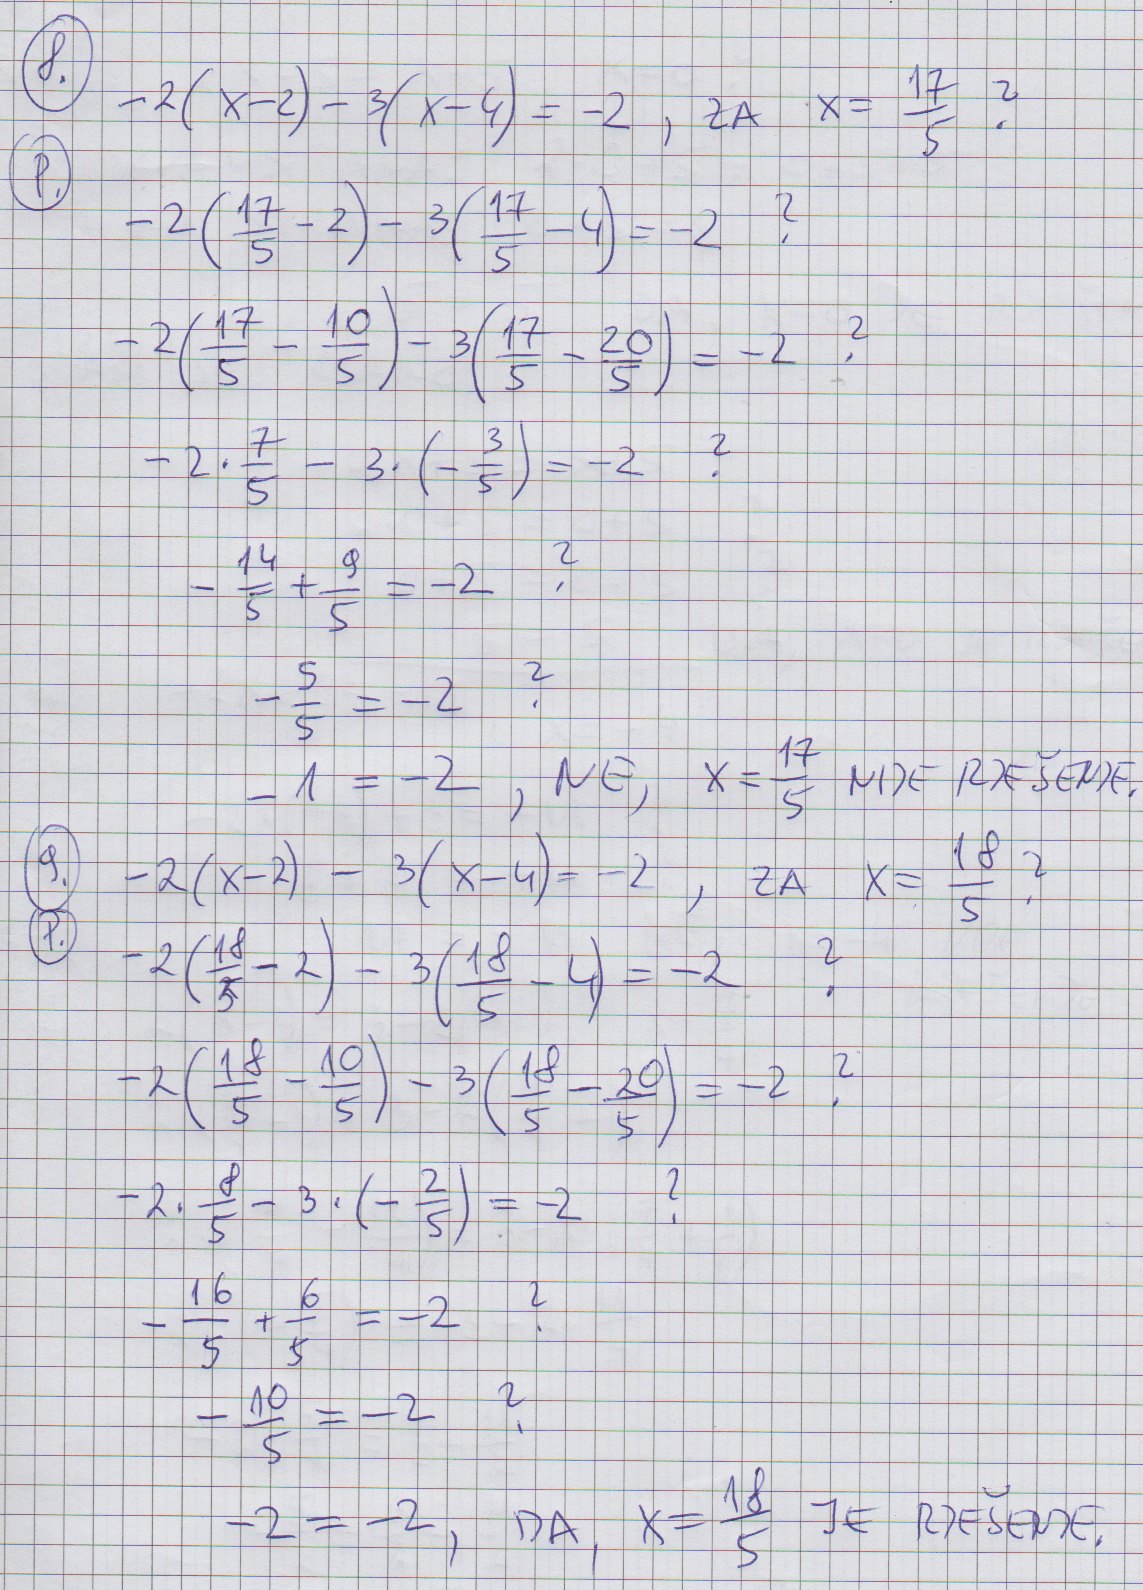 8. -2(x-2)-3(x-4)=-2, ZA x=17/5 ?
P.
-2(17/5-2)-3(17/5-4)=-2 ?
-2(17/5-10/5)-3(17/5-20/5)=-2 ?
-2·7/5-3·(-3/5)=-2 ?
-14/5+9/5=-2 ?
-5/5=-2 ?
-1=-2, NE, x=17/5 NIJE RJEŠENJE.
9. -2(x-2)-3(x-4)=-2, ZA x=18/5 ?
P. -2(18/5-2)-3(18/5-4)=-2 ?
-2(18/5-10/5)-3(18/5-20/5)=-2 ?
-2·8/5-3·(-2/5)=-2 ?
-16/5+6/5=-2 ?
-10/5=-2 ?
-2=-2, DA, x=18/5 JE RJEŠENJE.